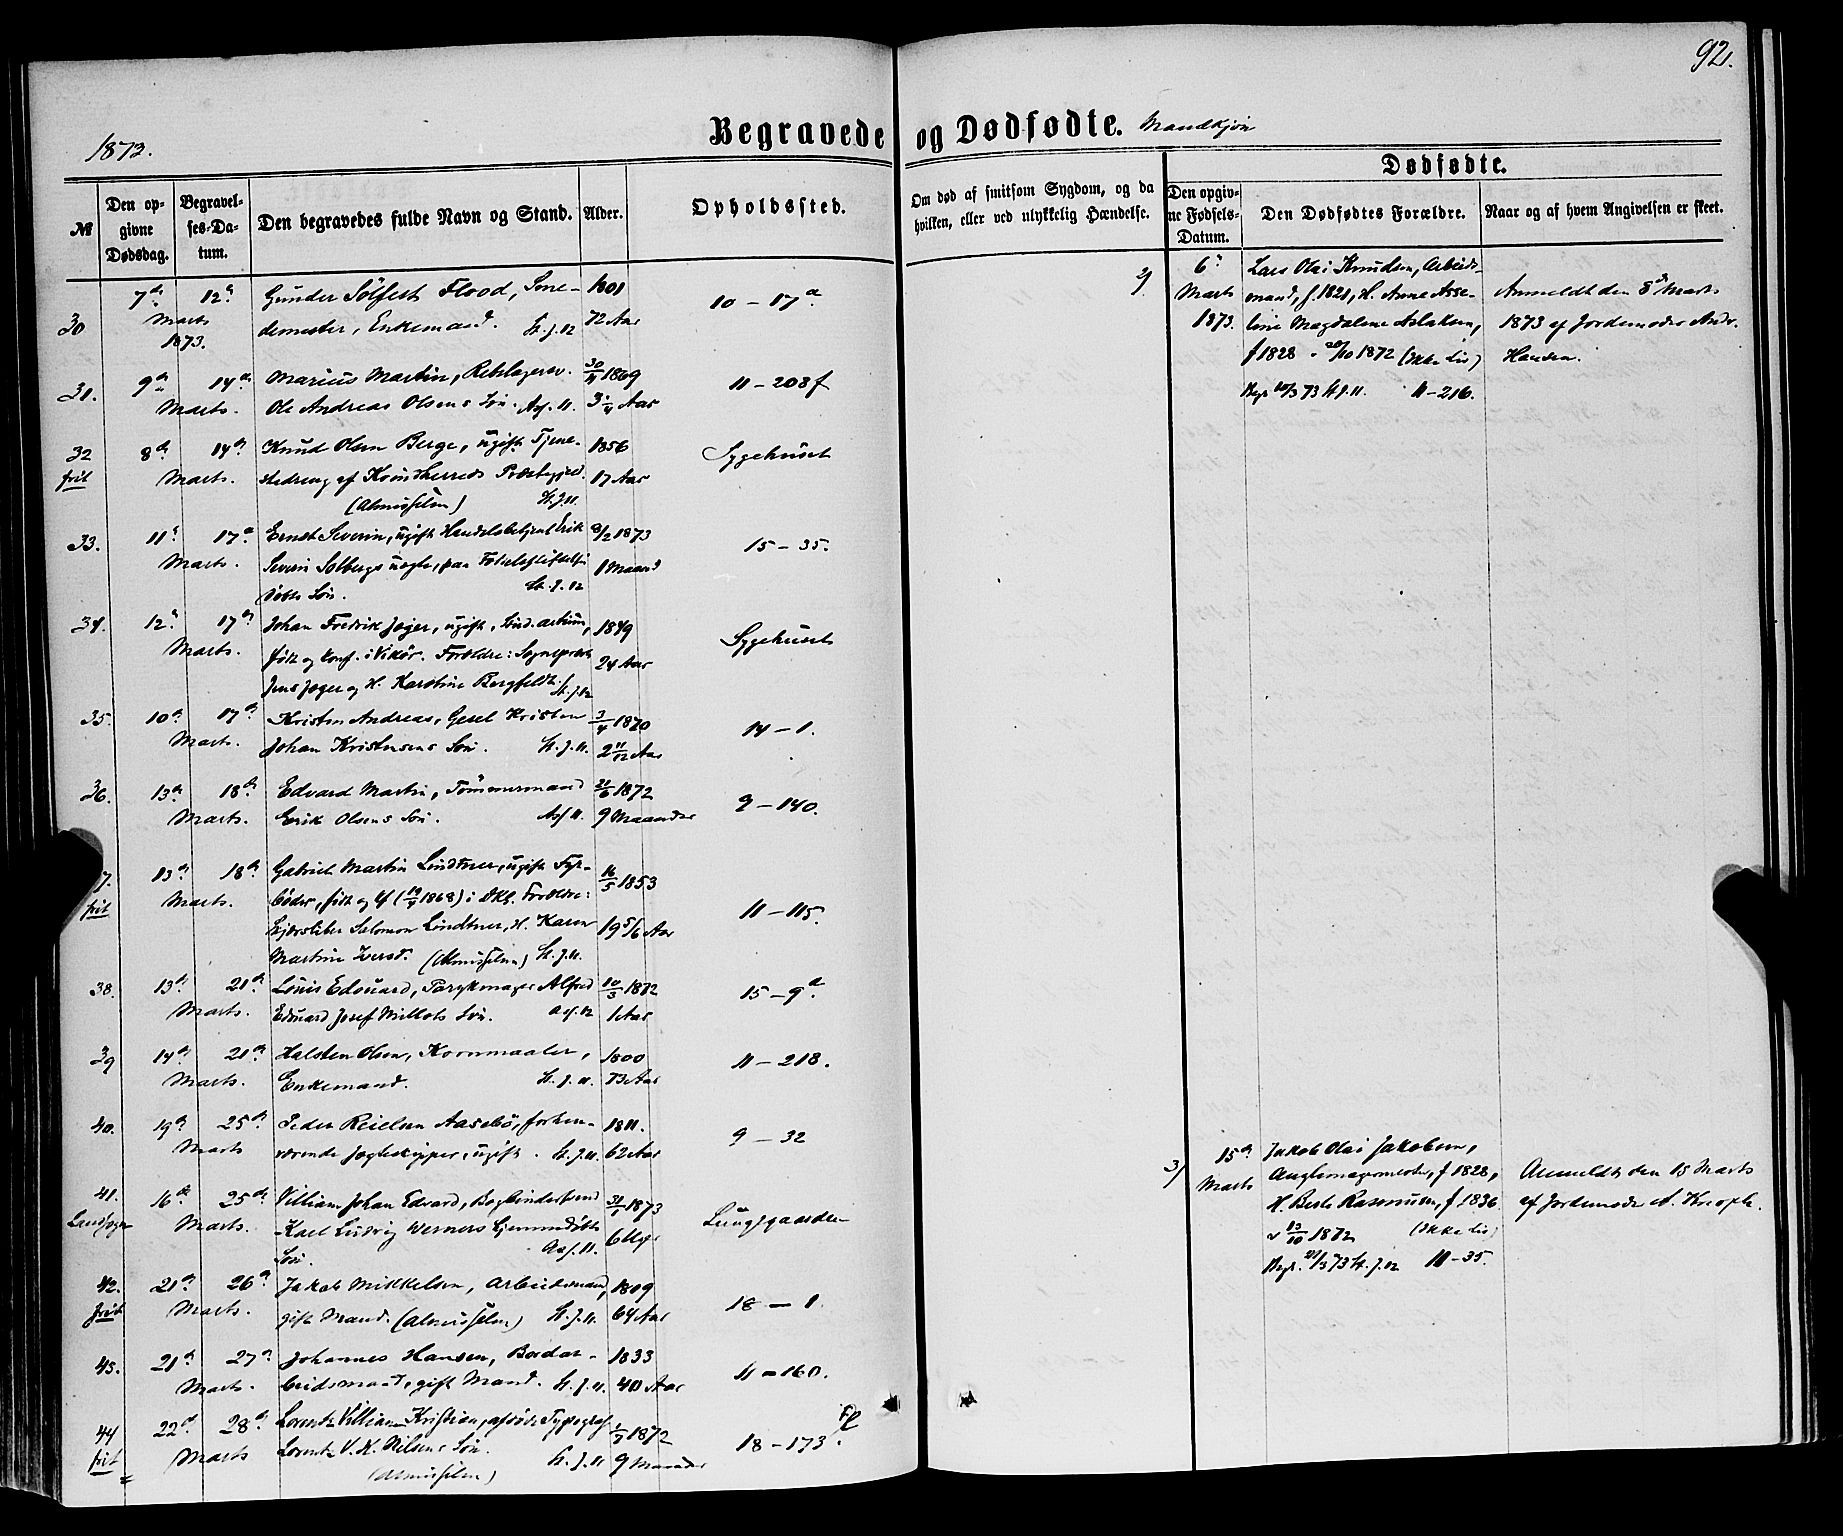 92.
1873.
Begravede og Dødfødte. Mandkjøn
№
Den opgivne Dødsdag.
Begravelses-Datum.
Den begravedes fulde Navn og Stand.
Alder.
Opholdssted.
Om død af smitsom Sygdom, og da hvilken, eller ved ulykkelig Hændelse.
Dødfødte.
Den opgivne Fødsels-Datum.
Den Dødfødtes Forældre.
Naar og af hvem Angivelsen er skeet.
30 7de 12te Gunder Sølfest Flood, 1801 10 – 17a
Marts 1873. demester, Enkemand. St.J.12 72 Aar
31. 9de 14de Marius Martin, Rebslagersv. 30/11 1869 11 – 208f
Marts. Ole Andreas Olsens Søn. Asf. 11. 3 1/4 Aar
32 8de 14de Knud Olsen Berge, ugift Tjene- 1856 Sygehuset
frit Marts. stedreng af Kvindherreds Præstegjeld. 17 Aar
(Almisselem) St.J.11.
33. 11te 17de Ernst Severin, ugift Handelsbetjent Erik 8/2 1873 15 – 35.
Marts. Severin Solbergs uægte, paa Fødselsstiftelsen 1 Maaned
døbte Søn. St.J.12
34. 12te 17de Johan Fredrik Jæger, ugift, Stud. artium, 1849 Sygehuset
Marts. født og konf. i Vikør. Forældre: Sognepræst 24 Aar
Jens Jæger og H. Karstine Bergfeldt. St.J.12
35. 10de 17de Kristen Andreas, Gesel Kristen 3/4 1870 14 – 1.
Marts. Johan Kristensens Søn. St.J.11. 2 11/12 Aar
36. 13de 18de Edvard Martin, Tømmermand 22/6 1872 9 – 140.
Marts. Erik Olsens Søn. Asf 11. 9 Maaneder
7. 13de 18de Gabriel Martin Lindtner, ugift Fyr- 16/5 1853 11 – 115.
frit Marts. bøder, født og kf (19/4 1868) i DKs. Forældre:
Salomon Lindtner, H. Karen 19 5/6 Aar
Martine Iversd. (Almisselem) St.J.11.
38. 13de 21de Louis Edouard, Parykmager Alfred 10/3 1872 15 – 9a.
Marts. Edouard Josef Millots Søn. Asf. 12 1 Aar
39 14de 21de Halsten Olsen, Kornmaaler, 1800 11 – 218.
Marts. Enkemand. St.J.11. 73 Aar
40. 19de 25de Peder Reielsen Aasebø, forhen- 1811. 9 – 32
Marts værende Jægteskipper, ugift. St.J.11. 62 Aar
41. 16de 25de Villiam Johan Edvard, Bogbindersvend 31/1 1873 Lungegaarden
Landsogn Marts. Karl Ludvig Werners hjemmedøbte 6 Uger
Søn. Asf. 11.
42. 21de 26de Jakob Mikkelsen, Arbeidsmand, 1809 18 – 1.
frit Marts. gift Mand. (Almisselem) St.J.11. 64 Aar
43. 21de 27de Johannes Hansen, Bordar- 1833 11 – 160.
Marts. beidsmand, gift Mand. St.J.11. 40 Aar
44 22de 28de Lorentz Villiam Kristian, afdøde Typograf 1872 18 – 173
frit Marts Lorentz V. K. Nielsens Søn. St.J.11 9 Maaneder
(Almisselem)
2)
6te Marts 1873.
Lars Olai Knudsen, Arbeids-
mand, f. 1821, H. Anne Asse-
line Magdalene Aslaksen,
f 1828 20/10 1872 (Ikke Liv)
Begr 10/3 73 St.J.11. 11 – 216.
Anmeldt den 8de Marts
1873 af Jordemoder Andr.
Hansen.
3)
15de Marts
Jakob Olai Jakobsen,
Anglemagermester, f 1828,
H. Berte Rasmusen, f 1836
v 13/10 1872 (Ikke Liv)
Begr. 21/3 73 St.J.12 11 – 35.
Anmeldt den 15 Marts
af Jordemoder A.